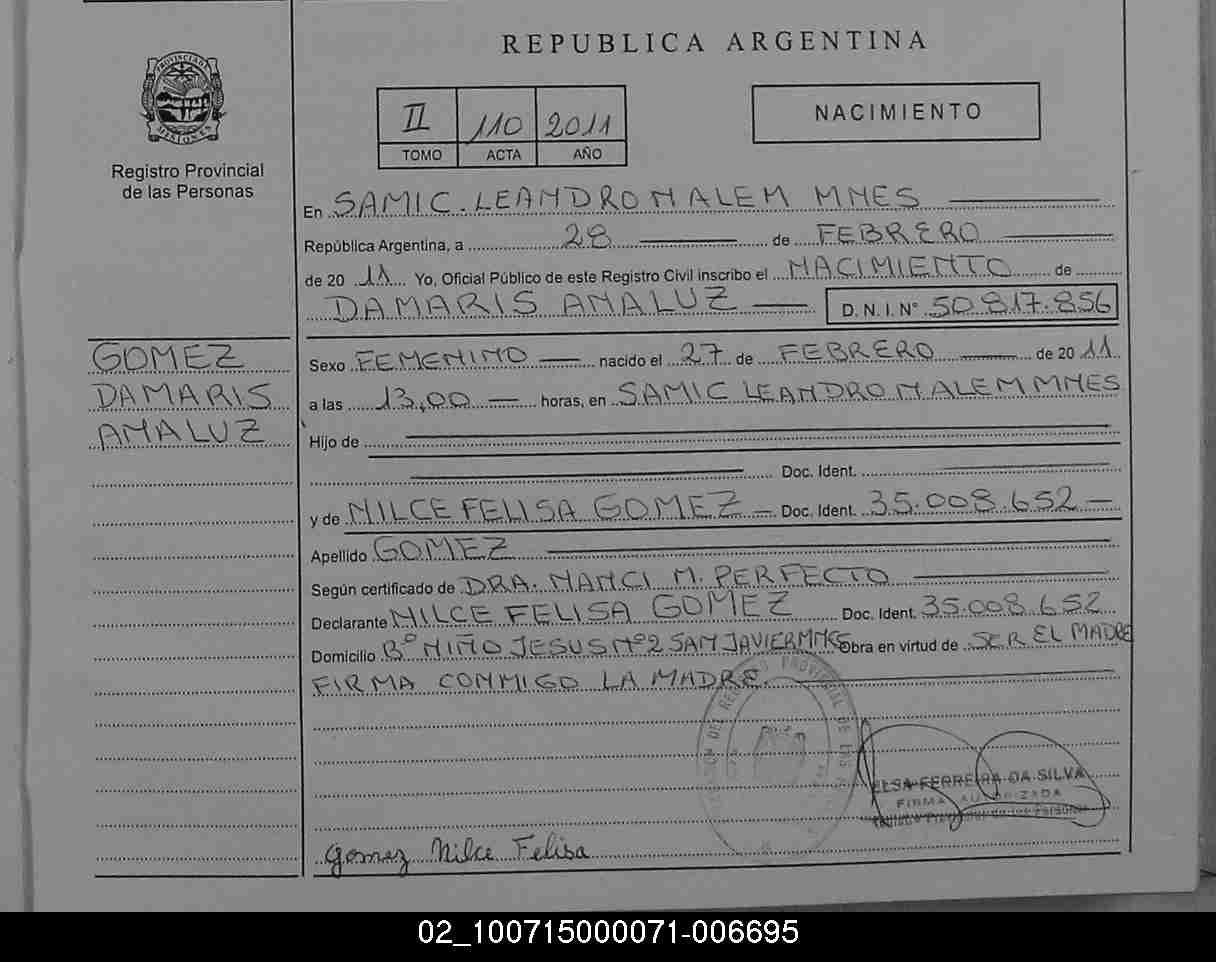 REPUBLICA ARGENTINA
PROVINCIA DE MISIONES
Registro Provincial
de las Personas
II 110 2011
TOMO ACTA AÑO
NACIMIENTO
En SAMIC. LEANDRO N ALEM MNES
República Argentina, a 28 de FEBRERO
de 20 11 Yo, Oficial Público de este Registro Civil inscribo el NACIMIENTO de
DAMARIS ANALUZ D. N. I. N° 50.817.856
GOMEZ
DAMARIS
ANALUZ
Sexo FEMENINO nacido el 27 de FEBRERO de 20 11
a las 13,00 horas, en SAMIC LEANDRO N ALEM MNES
Hijo de
Doc. Ident.
y de NILCE FELISA GOMEZ Doc. Ident. 35.008.652
Apellido GOMEZ
Según certificado de DRA. NANCI M. PERFECTO
Declarante NILCE FELISA GOMEZ Doc. Ident. 35.008.652
Domicilio B° NIÑO JESUS N°2 SAN JAVIER MNES Obra en virtud de SER EL MADRE
FIRMA CONMIGO LA MADRE.
ELSA FERREIRA DA SILVA
FIRMA AUTORIZADA
Gomez Nilce Felisa
02_100715000071-006695